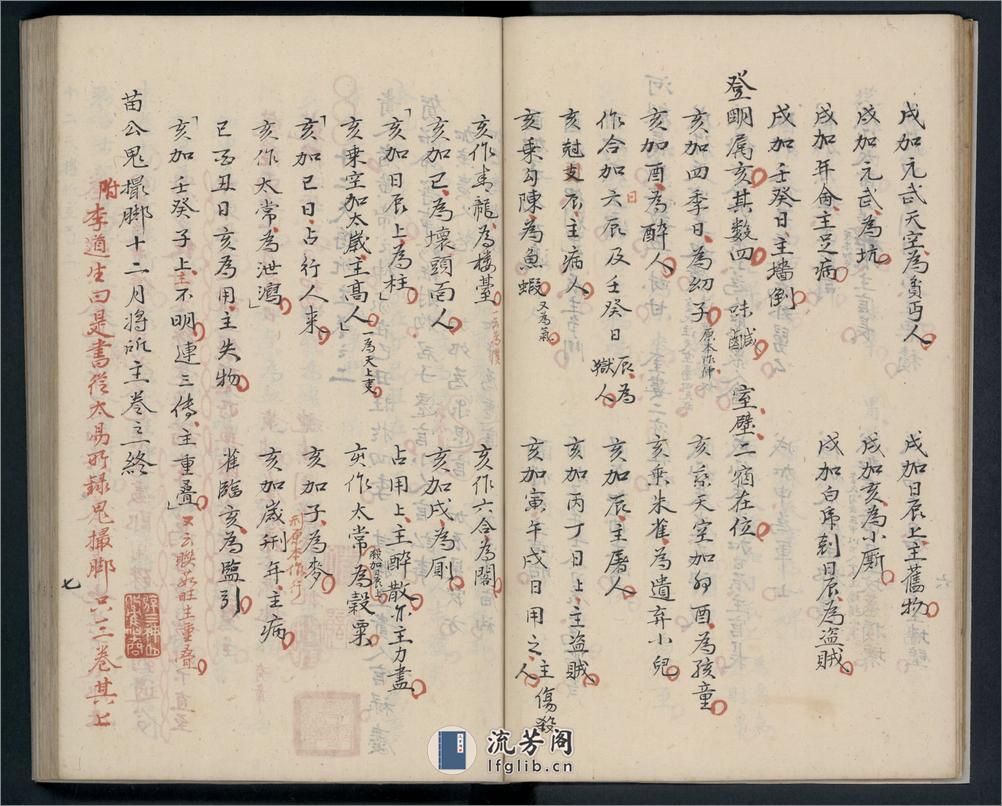 戌加元武天空為貧丐人　戌加日辰上主舊物
戌加元武為坑　戌加亥為小廝
戌加年命主足病　戌加白虎到日辰為盜賊
戌加壬癸日主墻倒
登明属亥其數四　味鹹　室壁二宿在位
亥加四季日為幼子　亥系天空加卯酉為孩童
亥加酉為醉人　亥乘朱雀為遺弃小兒
作合加六辰及壬癸日辰為獄人　亥加辰主屠人
亥尅支辰主病人　亥加丙丁日上主盜賊
亥乘勾陳為魚蝦又為氣　亥加寅午戌日用之主傷殺人
亥作青龍為樓臺　亥作六合為閣
亥加巳為壞頭面人　亥加戌為廁
亥加日辰上為柱　占用上主醉散亦主力盡
亥乘空加太歲主高人一為天上吏　亥作太常為穀粟
亥加巳日占行人来　亥加子為麥
亥作太常為泄瀉　亥加歲刑年主病
巳酉丑日亥為用主失物　雀臨亥為監引
亥加壬癸子上主不明連三傳主重叠
苗公鬼撮脚十二月將所主卷之終
附李道生曰是書從太易所録鬼撮脚只三卷其上
七
流芳阁
lfglib.cn